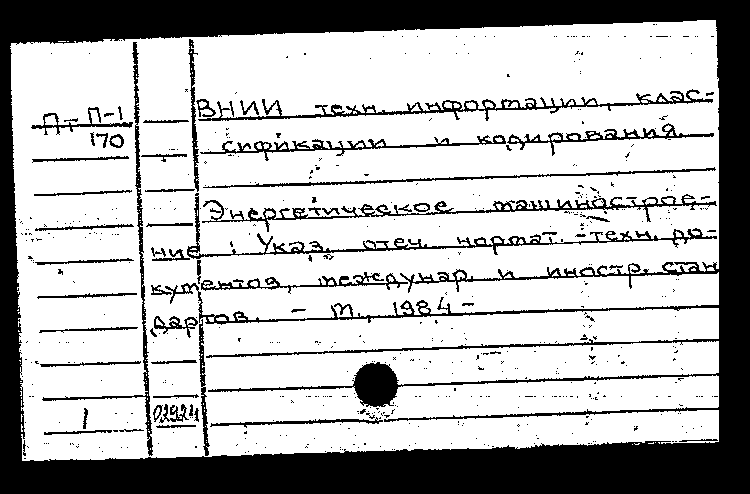 Пт П-1 ВНИИ техн. информации, клас-
170 сификации и кодирования.
Энергетическое машинострое-
ние : Указ. отеч. нормат.-техн. до-
кументов, междунар. и иностр. стан
дартов. - М., 1984 -
1 02924